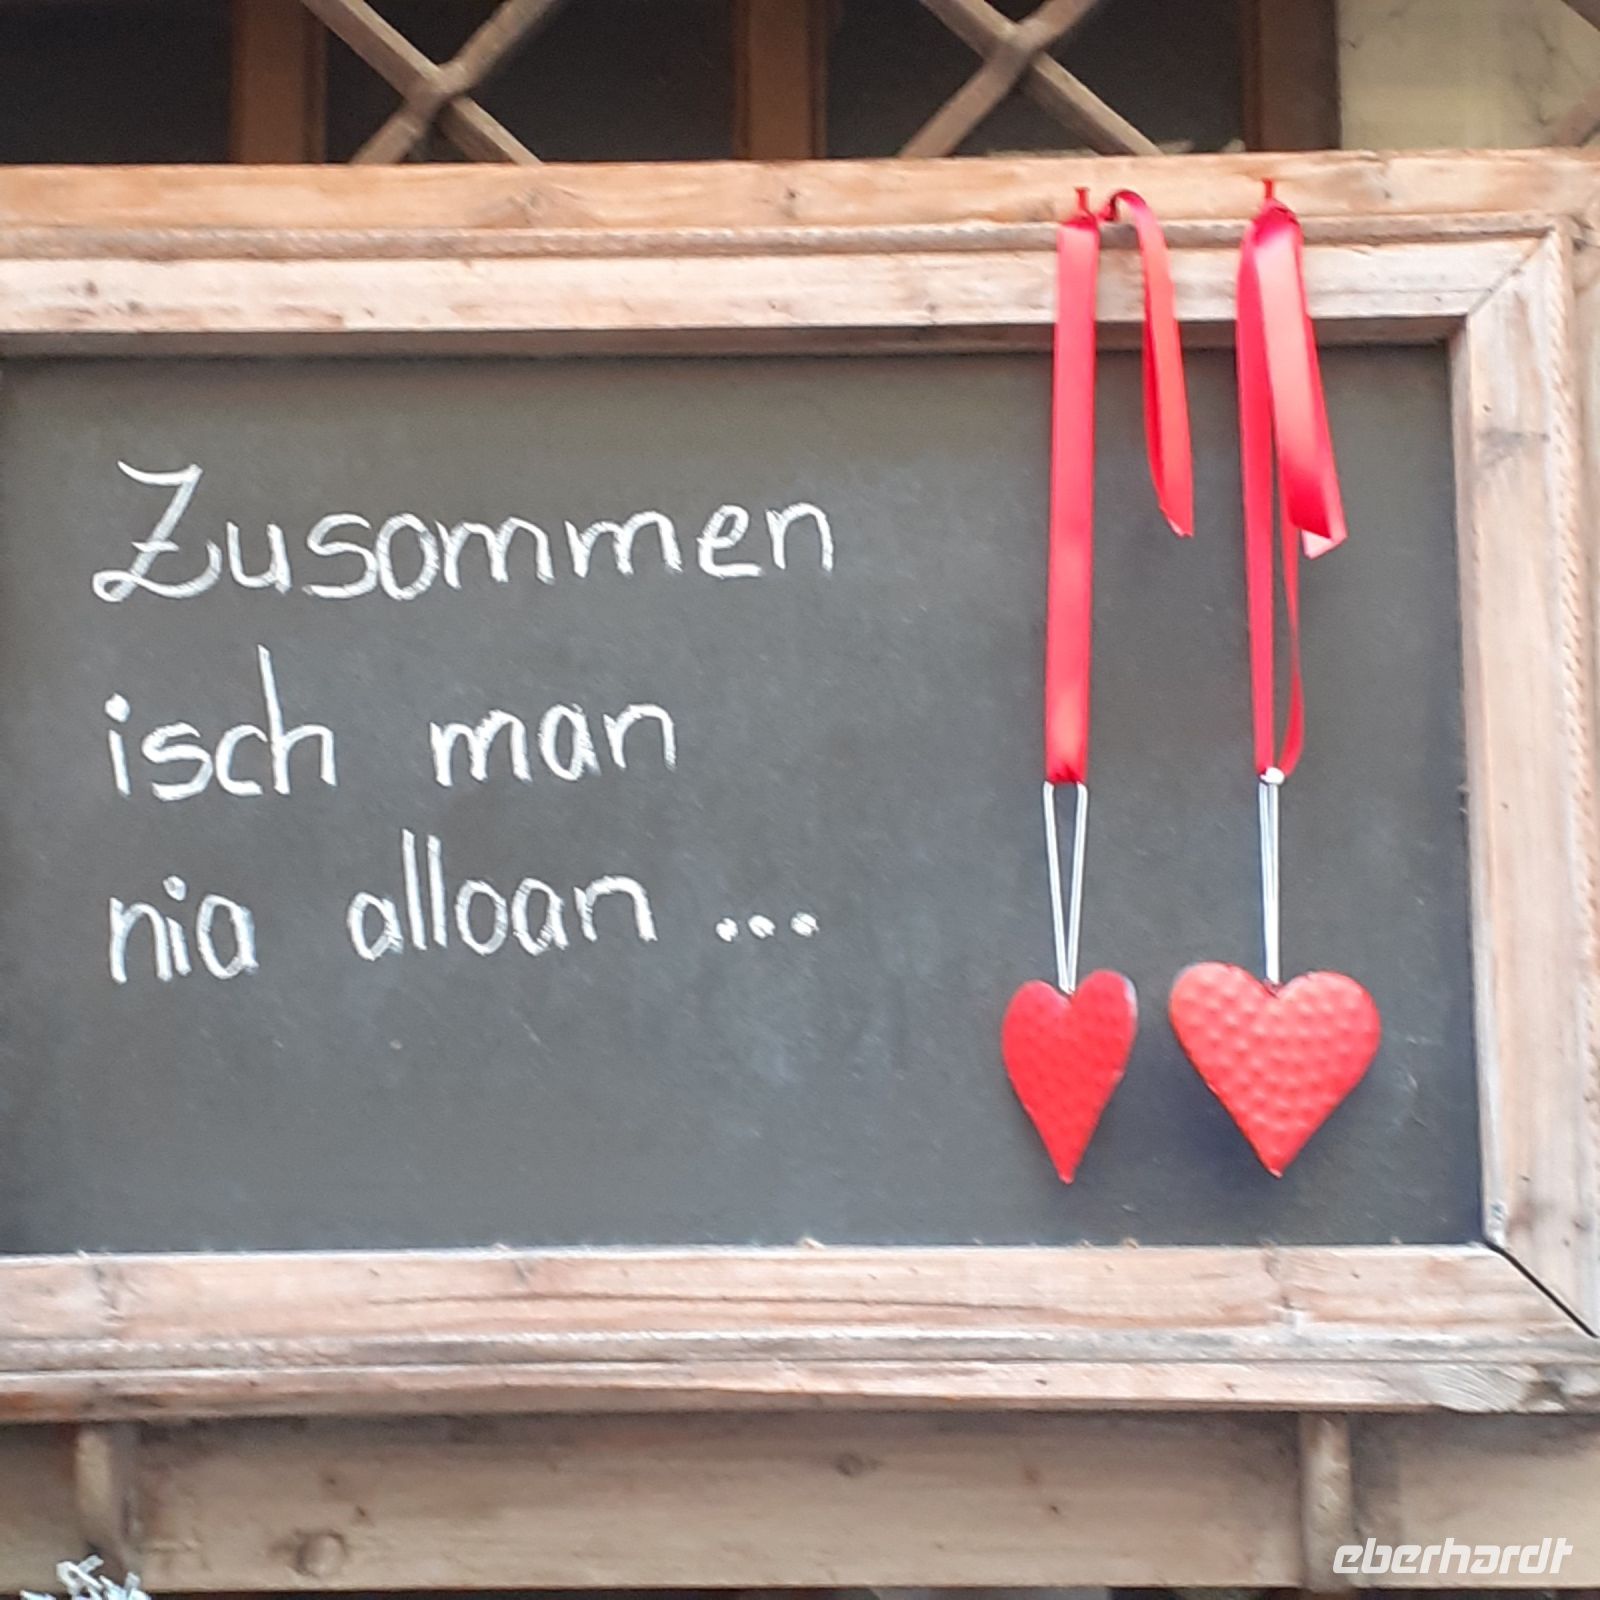 Zusommen
isch man
nia alloan ...
eberhardt